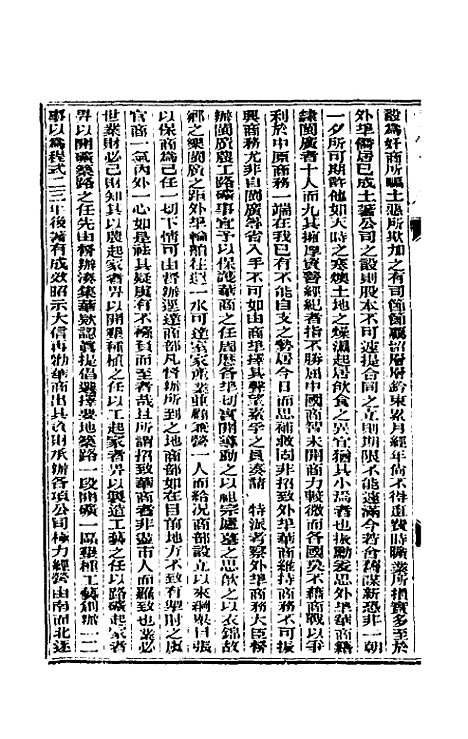 設爲奸商所嚇土惡所欺加之有司箇箇羈留層層鈐束累月經年尚不得直費時曠業所損實多至於
外埠僑居已成土著公司之設則股本不可遽提合同之立則期限不能遽滿今若舍舊謀新恐非一朝
一夕所可期許他如天時之寒燠土地之燥濕起居飲食之異宜猶其小焉者也振勵委思外埠華商籍
隸閩廣者十人而九其擁厚貲營經紀者指不勝屈中國商智未開商力較微而各國莫不藉商戰以爭
利於中原商務一端在我已有不能自支之勢居今日而思補救固非招致外埠華商維持商務不可振
興商務尤非自閩廣等省入手不可如由商埠擇其聲望素孚之員奏請 特派考察外埠商務大臣督
辦閩廣農工路礦事宜予以保護華商之任周歷各埠切實開導勵之以祖宗廬墓之思歆之以衣錦故
鄉之樂閩廣之距外埠輪舶往還一水可達室家產業並顧兼營一人而給況商部設立以來綱舉目張
以保商爲己任一切下情可由督辦逕達商部凡督辦所到之地商部如在目前地方不致有掣肘之虞
官商一氣內外一心如是社其疑虞有不襁負而至者哉且所謂招致華商者非盡市人而羅致也業必
世業財必己財知其以農起家者畀以開墾種植之任以工起家者畀以製造工藝之任以路礦起家者
畀以開礦築路之任先由督辦湊集華欵認眞提倡選擇要地築路一段開礦一區墾種工藝創辦一二
事以爲程式二三年後著有成效昭示大信再勸華商出其貲財承辦各項公司極力經營由南而北逐